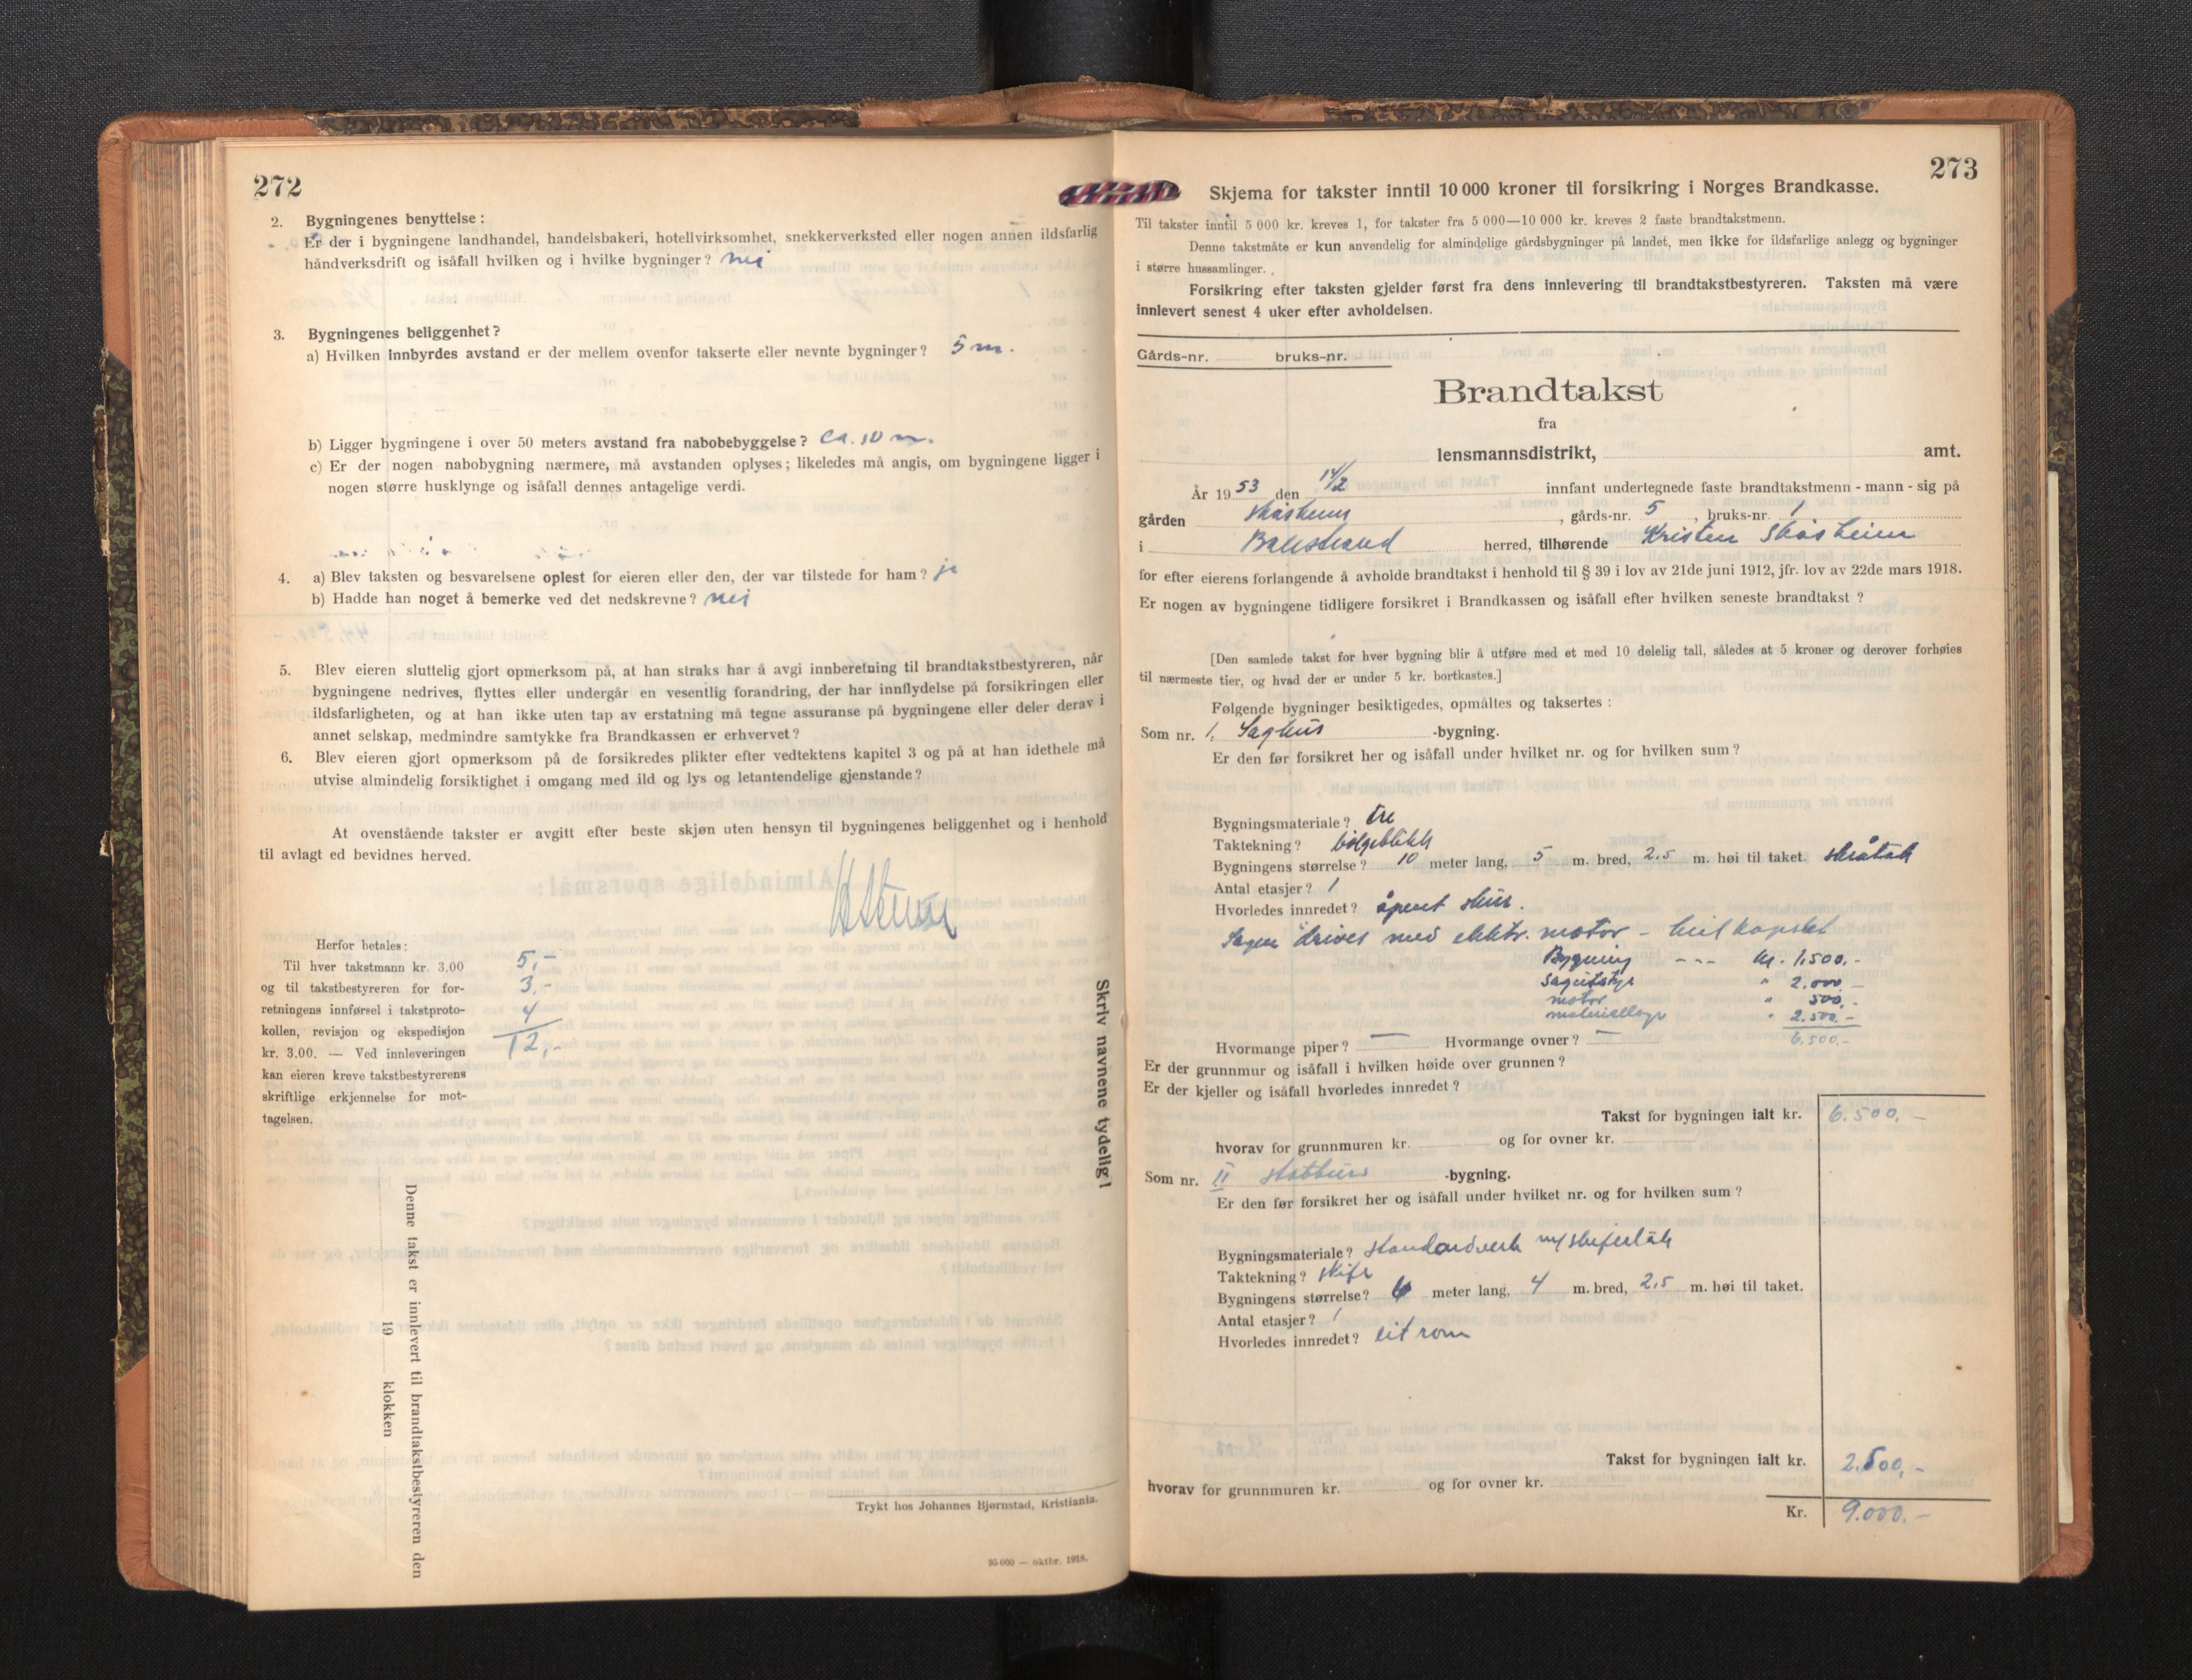 272
2. Bygningenes benyttelse:
Er der i bygningene landhandel, handelsbakeri, hotellvirksomhet, snekkerverksted eller nogen annen ildsfarlig
håndverksdrift og isåfall hvilken og i hvilke bygninger? nei
3. Bygningenes beliggenhet?
a) Hvilken innbyrdes avstand er der mellem ovenfor takserte eller nevnte bygninger? 5 m.
b) Ligger bygningene i over 50 meters avstand fra nabobebyggelse? ca. 10 m.
c) Er der nogen nabobygning nærmere, må avstanden oplyses; likeledes må angis, om bygningene ligger i
nogen større husklynge og isåfall dennes antagelige verdi.
4. a) Blev taksten og besvarelsene oplest for eieren eller den, der var tilstede for ham? ja
b) Hadde han noget å bemerke ved det nedskrevne? nei
5. Blev eieren sluttelig gjort opmerksom på, at han straks har å avgi innberetning til brandtakstbestyreren, når
bygningene nedrives, flyttes eller undergår en vesentlig forandring, der har innflydelse på forsikringen eller
ildsfarligheten, og at han ikke uten tap av erstatning må tegne assuranse på bygningene eller deler derav i
annet selskap, medmindre samtykke fra Brandkassen er erhvervet?
6. Blev eieren gjort opmerksom på de forsikredes plikter efter vedtektens kapitel 3 og på at han idethele må
utvise almindelig forsiktighet i omgang med ild og lys og letantendelige gjenstande?
At ovenstående takster er avgitt efter beste skjøn uten hensyn til bygningenes beliggenhet og i henhold
til avlagt ed bevidnes herved.
Herfor betales:
Til hver takstmann kr. 3.00 5,-
og til takstbestyreren for for- 3,-
retningens innførsel i takstproto- 4
kollen, revisjon og ekspedisjon 12,-
kr. 3.00. — Ved innleveringen
kan eieren kreve takstbestyrerens
skriftlige erkjennelse for mot-
tagelsen.
Denne takst er innlevert til brandtakstbestyreren den
19 klokken
Skriv navnene tydelig!
Trykt hos Johannes Bjørnstad, Kristiania.
95 000 — oktbr. 1918.
273
Skjema for takster inntil 10 000 kroner til forsikring i Norges Brandkasse.
Til takster inntil 5 000 kr. kreves 1, for takster fra 5 000—10 000 kr. kreves 2 faste brandtakstmenn.
Denne takstmåte er kun anvendelig for almindelige gårdsbygninger på landet, men ikke for ildsfarlige anlegg og bygninger
i større hussamlinger.
Forsikring efter taksten gjelder først fra dens innlevering til brandtakstbestyreren. Taksten må være
innlevert senest 4 uker efter avholdelsen.
Gårds-nr. bruks-nr.
Brandtakst
fra
lensmannsdistrikt, amt.
År 1953 den 14/2 innfant undertegnede faste brandtakstmenn - mann - sig på
gården Skåsheim, gårds-nr. 5, bruks-nr. 1
i Balestrand herred, tilhørende Kristen Skåsheim
for efter eierens forlangende å avholde brandtakst i henhold til § 39 i lov av 21de juni 1912, jfr. lov av 22de mars 1918.
Er nogen av bygningene tidligere forsikret i Brandkassen og isåfall efter hvilken seneste brandtakst?
[Den samlede takst for hver bygning blir å utføre med et med 10 delelig tall, således at 5 kroner og derover forhøies
til nærmeste tier, og hvad der er under 5 kr. bortkastes.]
Følgende bygninger besiktigedes, opmåltes og taksertes:
Som nr. 1. Saghus -bygning.
Er den før forsikret her og isåfall under hvilket nr. og for hvilken sum?
Bygningsmateriale? tre
Taktekning? bølgeblikk
Bygningens størrelse? 10 meter lang, 5 m. bred, 2.5 m. høi til taket. skråtak
Antal etasjer? 1
Hvorledes innredet? åpent skur.
Sagen drives med elektr. motor - heilkapslet
Bygning --- kr. 1.500.-
Sagutstyr " 2.000.-
motor " 500.-
materiellager " 2.500.-
6.500.-
Hvormange piper? — Hvormange ovner? —
Er der grunnmur og isåfall i hvilken høide over grunnen?
Er der kjeller og isåfall hvorledes innredet?
Takst for bygningen ialt kr. 6.500,-
hvorav for grunnmuren kr. og for ovner kr.
Som nr. II Stabburs -bygning.
Er den før forsikret her og isåfall under hvilket nr. og for hvilken sum?
Bygningsmateriale? standardverk m/skifertak
Taktekning? skifr
Bygningens størrelse? 6 meter lang, 4 m. bred, 2.5 m. høi til taket.
Antal etasjer? 1
Hvorledes innredet? eit rom
Takst for bygningen ialt kr. 2.500,-
hvorav for grunnmuren kr. og for ovner kr.
Kr. 9.000.-